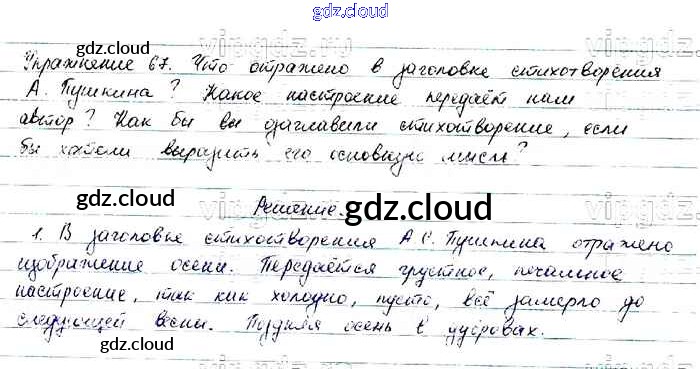 gdz.cloud
gdz.cloud
Упражнение 67. Что отражено в заголовке стихотворения
А. Пушкина? Какое настроение передаёт нам
gdz.cloud
gdz.cloud
автор? Как бы вы озаглавили стихотворение, если
бы хотели выразить его основную мысль?
gdz.cloud
Решение.
gdz.cloud
1. В заголовке стихотворения А.С. Пушкина отражено
изображение осени. Передаётся грустное, печальное
настроение, так как холодно, пусто, всё замерло до
gdz.cloud
gdz.cloud
следующей весны. Поздняя осень в
gdz.cloud